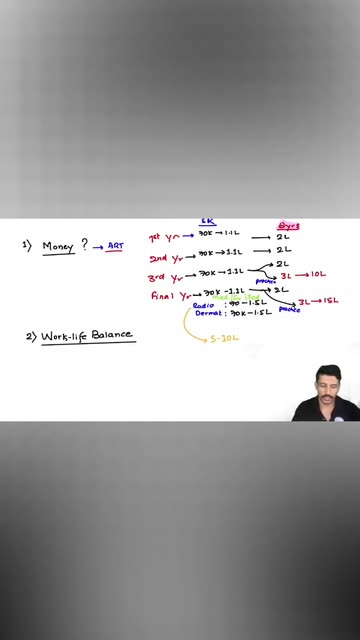 5K 8yrs
1) Money ? → ART
1st yr → 70K → 1.1L → 2L
2nd Yr → 70K → 1.1L → 2L
3rd Yr → 70K → 1.1L → 2L
practice 3L → 10L
Final Yr → 70K - 1.1L → 2L
Med
Radio : 70 - 1.5L practice 3L → 15L
Dermat : 70K - 1.5L
2) Work-life Balance
5-30L